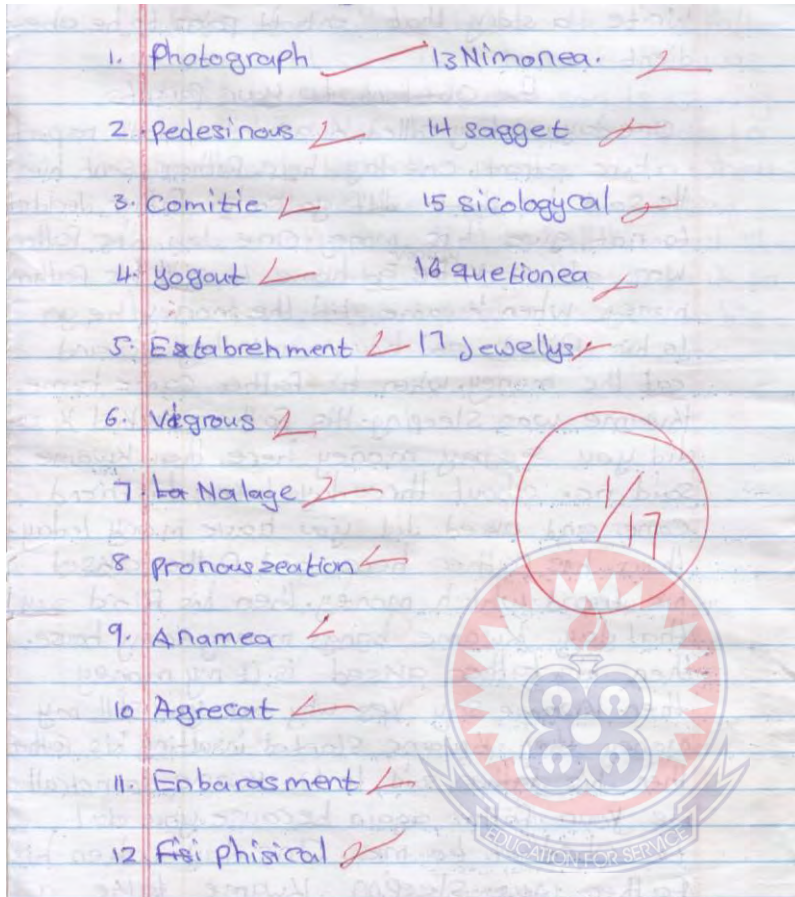 1. Photograph
2. Pedesinous
3. Comitie
4. yogout
5. Estabrehment
6. Vegrous
7. La Nalage
8 pronouszeation
9. Anamea
10 Agrecat
11. Enbarasment
12 Fisi phisical
13 Nimonea.
14 sagget
15 sicologycal
16 quetionea
17 Jewellys
1/17
EDUCATION FOR SERVICE